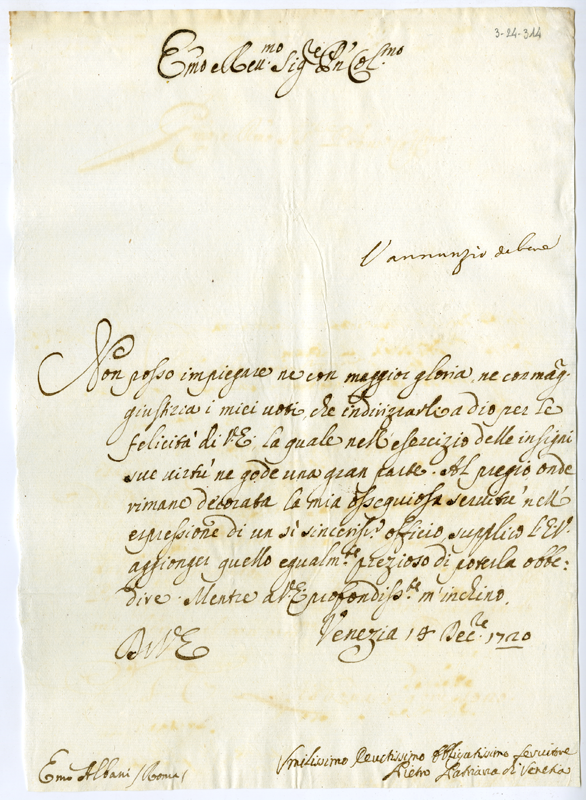 3-24-314
Emo e Reu.mo Sig.re P.n Col.mo
L'annunzio di bene
Non posso impiegare ne con maggior gloria, ne con mag.r
giustizia i miei uoti, che indirizzarli a dio per le
felicità di V.E. la quale nell'esercizio delle insigni
sue uirtù ne gode una gran parte. Al pregio onde
rimane decorata la mia ossequiosa seruitù nell'
espressione di un sì sinceriss.o officio, supplico l'E.V.
aggionger quello egualm.te prezioso di poterla obbe=
dire. Mentre a V.E. profondiss.te m'inchino.
Di V.E.
Venezia 18 Dec.re 1720
Emo Albani / Roma /
Vmilissimo Deuotissimo Obligatissimo Seruitore
Pietro Patriarca di Venetia